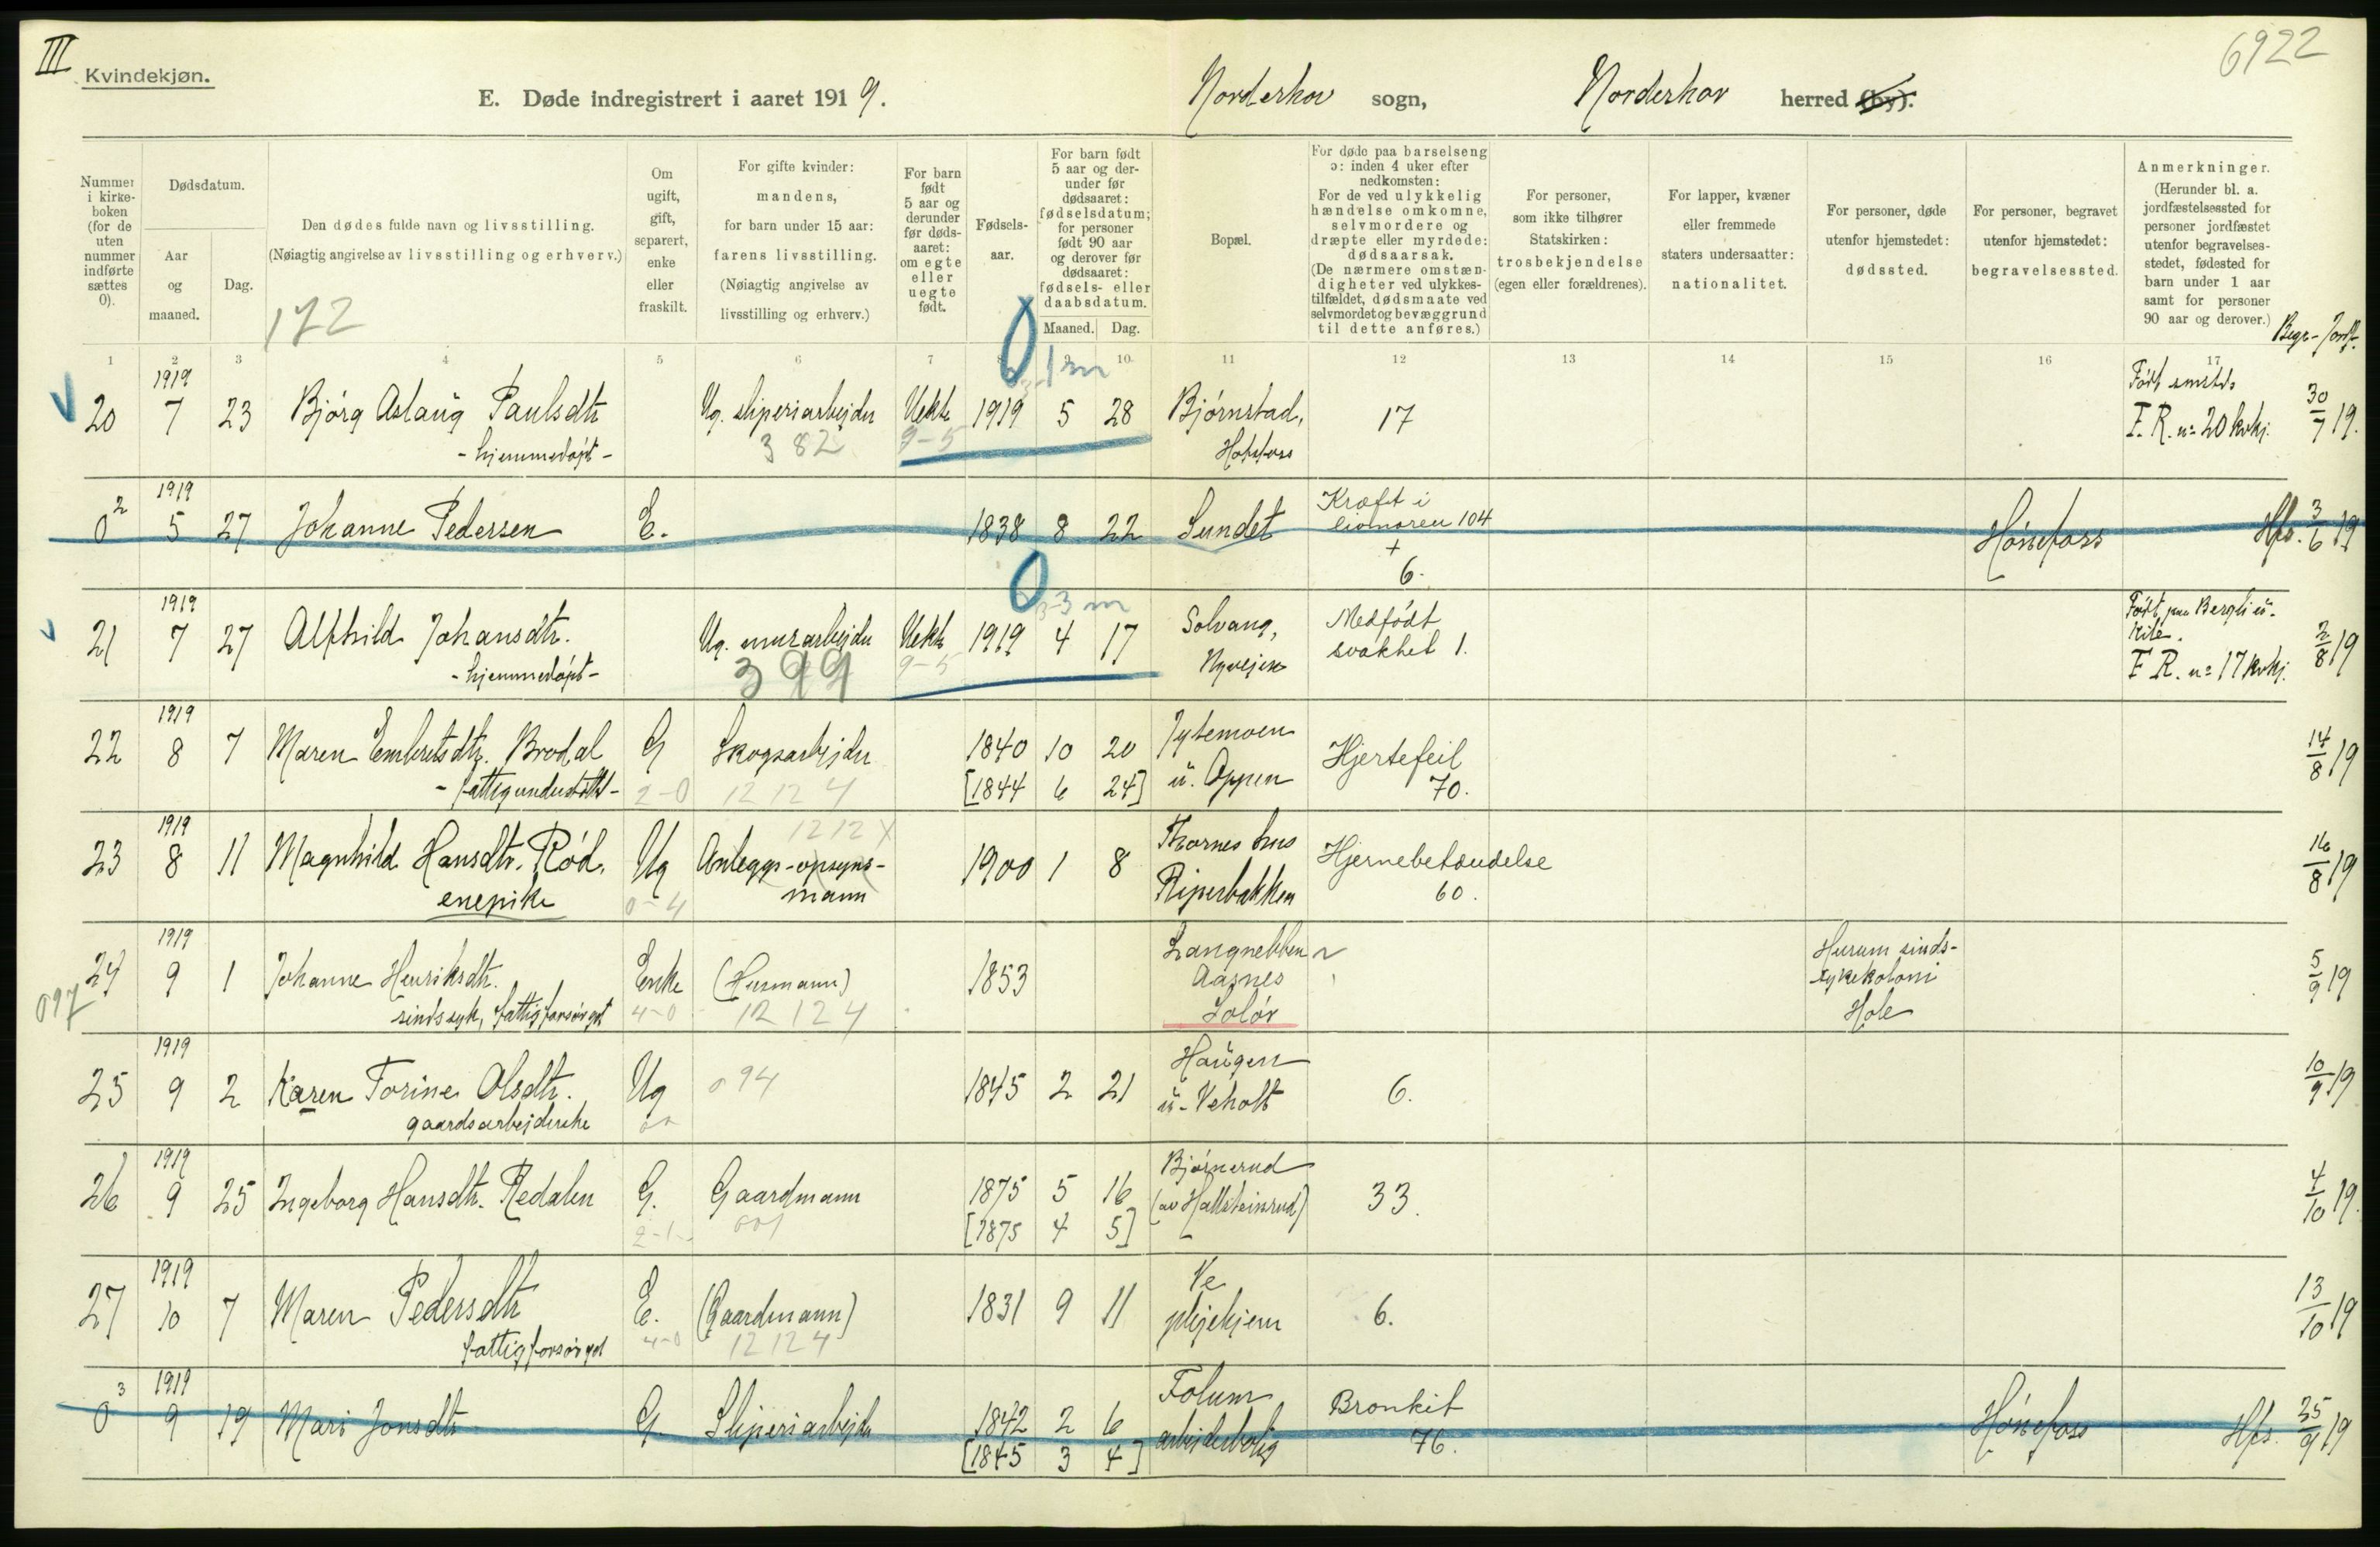 III
Kvindekjøn.
6922
E. Døde indregistrert i aaret 1919.
Norderhov sogn,
Norderhov herred (by).
Nummer i kirke-boken (for de uten nummer indførte sættes 0).
Dødsdatum.
Aar og maaned.
Dag.
Den dødes fulde navn og livsstilling.
(Nøiagtig angivelse av livsstilling og erhverv.)
172
Om ugift, gift, separert, enke eller fraskilt.
For gifte kvinder: mandens, for barn under 15 aar: farens livsstilling.
(Nøiagtig angivelse av livsstilling og erhverv.)
For barn født 5 aar og derunder før døds-aaret: om egte eller uegte født.
Fødsels-aar.
For barn født 5 aar og der-under før dødsaaret: fødselsdatum; for personer født 90 aar og derover før dødsaaret: fødsels- eller daabsdatum.
Maaned. Dag.
Bopæl.
For døde paa barselseng ɔ: inden 4 uker efter nedkomsten:
For de ved ulykkelig hændelse omkomne, selvmordere og dræpte eller myrdede: dødsaarsak.
(De nærmere omstæn-digheter ved ulykkes-tilfældet, dødsmaate ved selvmordet og bevæggrund til dette anføres.)
For personer, som ikke tilhører Statskirken: trosbekjendelse (egen eller forældrenes).
For lapper, kvæner eller fremmede staters undersaatter: nationalitet.
For personer, døde utenfor hjemstedet: dødssted.
For personer, begravet utenfor hjemstedet: begravelsessted.
Anmerkninger.
(Herunder bl. a. jordfæstelsessted for personer jordfæstet utenfor begravelses-stedet, fødested for barn under 1 aar samt for personer 90 aar og derover.)
Begr- Jordf.
1 2 3 4 5 6 7 8 9 10 11 12 13 14 15 16 17
0 1 m
1919
20 7 23 Bjørg Aslaug Paulsdtr Ug. sliperiarbejder Uekte 1919 5 28 Bjørnstad, 17 Født smstds 30/7 19.
- hjemmedøpt - 382 9-5 Hofsfoss F. R. no 20 kvkj.
1919
0 2 5 27 Johanne Pedersen E. 1838 8 22 Sundet Kræft i livmoren 104 + 6. Hønefoss Hfs. 3/6 19
0 3 m
1919
21 7 27 Alfhild Johansdtr. Ug. murarbejder Uekte 1919 4 17 Solvang, Medfødt Født paa Bergli 2/8 19
- hjemmedøpt - 399 9-5 Nyvejen svakhet 1. F. R. no 17 kvkj.
1919
22 8 7 Maren Embretsdtr. Brodal G Skogsarbejder 1840 10 20 Jytemoen Hjertefeil 14/8 19
- fattigunderstøttet - 2-0 12 12 4 [1844 6 24] u. Oppen 70.
1919
23 8 11 Magnhild Hansdtr. Rød. Ug Anleggs-opsyns- 1900 1 8 Thornes hus Hjernebetændelse 16/8 19
enepike 0-4 mann 1212 X Riperbakken 60.
1919
24 9 1 Johanne Henriksdtr. Enke (Husmann) 1853 Langnebben Hurum sinds- 5/9 19
097 sindssyk, fattigforsørget 4-0 12 12 4 Aasnes sykekoloni
Solør Hole
1919
25 9 2 Karen Torine Olsdtr. Ug 094 1845 2 21 Haugen 6. 10/9 19
gaardsarbejderske u. Veholt
1919
26 9 25 Ingeborg Hansdtr. Redalen G. Gaardmann 1875 5 16 Bjørnerud 33. 4/10 19.
2-1 001 [1875 4 5] (av Hallsteinrud)
1919
27 10 7 Maren Pedersdtr E. (Gaardmann) 1831 9 11 Ve 6. 13/10 19
fattigforsørget 4-0 12 12 4 plejehjem
1919
0 3 9 19 Mari Jonsdtr G. Sliperiarbejder 1842 2 6 Folum Bronkit Hønefoss Hfs. 25/9 19
[1845 3 4] arbejderbolig 76.